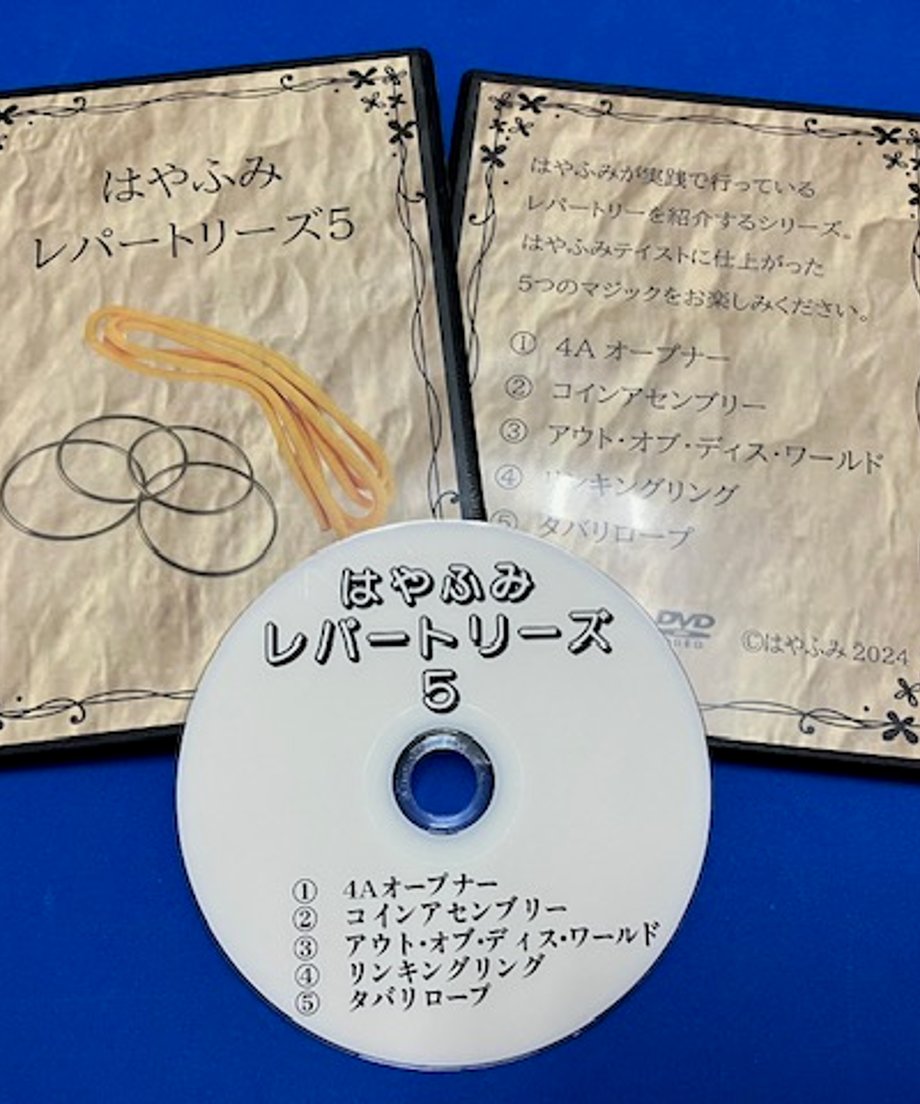 はやふみ
レパートリーズ5
はやふみが実践で行っている
レパートリーを紹介するシリーズ。
はやふみテイストに仕上がった
5つのマジックをお楽しみください。
① 4A オープナー
② コインアセンブリー
③ アウト・オブ・ディス・ワールド
④ リンキングリング
⑤ タバリロープ
DVD
VIDEO
©はやふみ 2024
はやふみ
レパートリーズ
5
① 4Aオープナー
② コインアセンブリー
③ アウト・オブ・ディス・ワールド
④ リンキングリング
⑤ タバリロープ